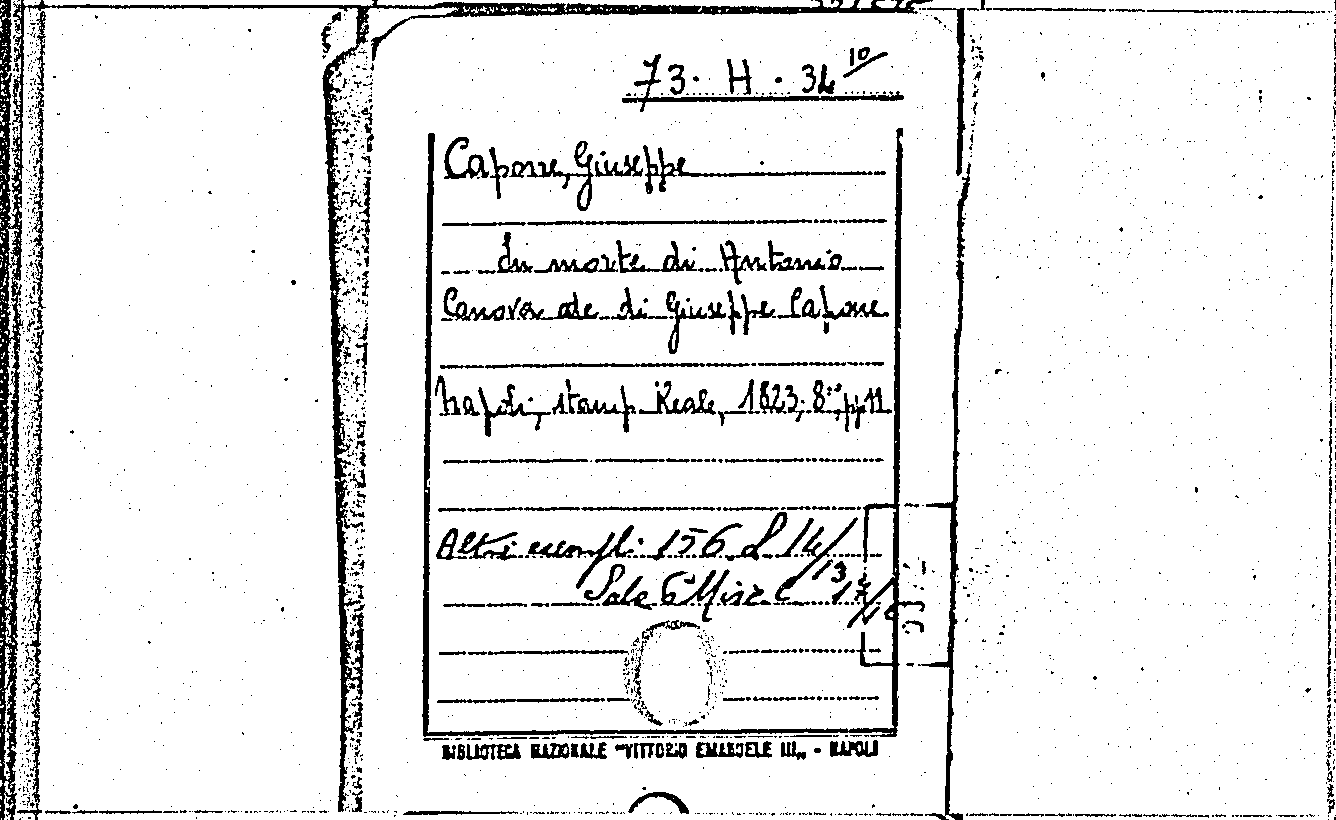 73. H. 34 10/
Capone, Giuseppe
In morte di Antonio
Canova ode di Giuseppe Capone
Napoli, stamp. Reale, 1823, 8°, pp. 11.
Altri esempl: 156. L 14/13
Sala 6ª Misc. C 17/16
BIBLIOTECA NAZIONALE "VITTORIO EMANUELE III„ - NAPOLI